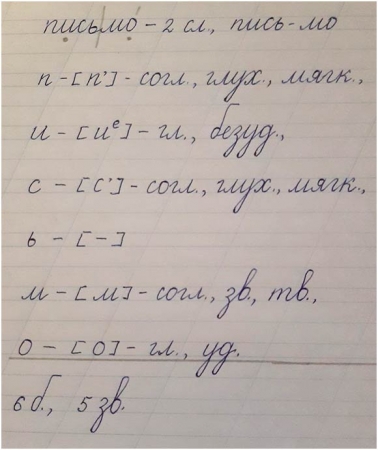 письмо - 2 сл., пись-мо
п - [п'] - согл., глух., мягк.,
и - [иᵉ] - гл., безуд.,
с - [с'] - согл., глух., мягк.,
ь - [-]
м - [м] - согл., зв., тв.,
о - [о] - гл., уд.
6 б., 5 зв.